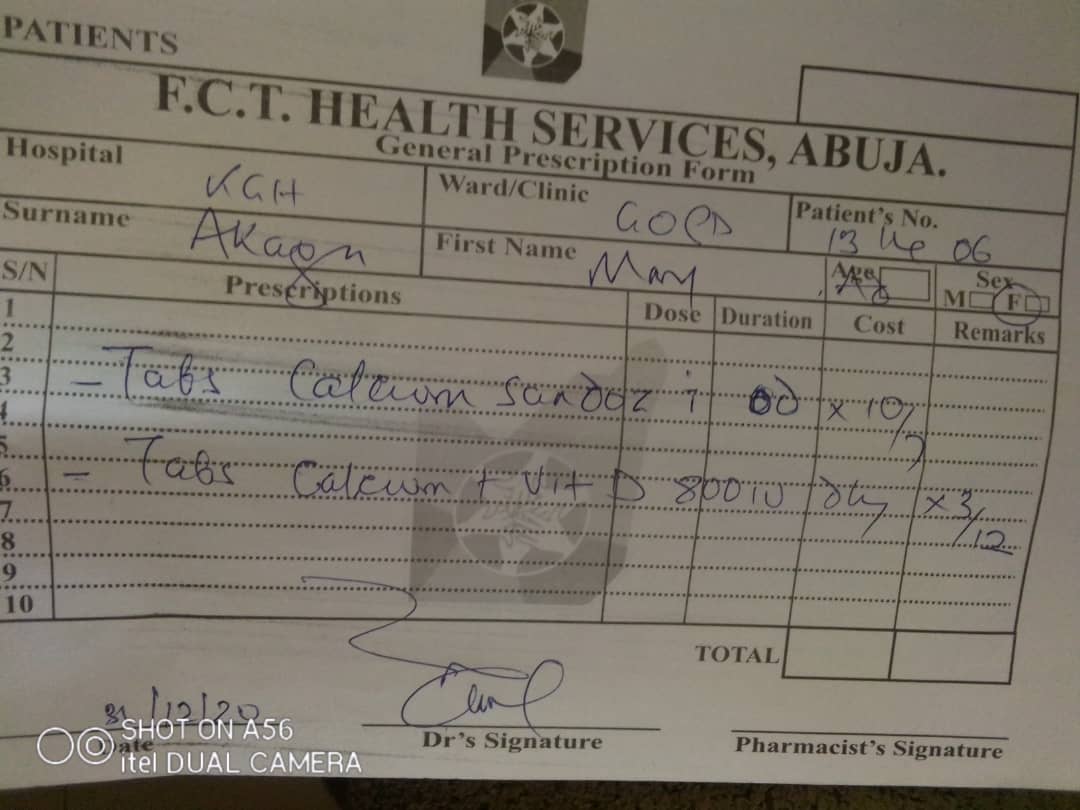 PATIENTS
F.C.T. HEALTH SERVICES, ABUJA.
General Prescription Form
Hospital KGH Ward/Clinic GOPD Patient's No. 13 06
Surname First Name Mary Age Sex M F
S/N Prescriptions Dose Duration Cost Remarks
1
2
3 - Tabs Calcium Sandoz i od x 10/7
4
5
6 - Tabs Calcium + Vit D 800 IU dly x 3/12
7
8
9
10
TOTAL
31/12/20
Date Dr's Signature Pharmacist's Signature
SHOT ON A56
itel DUAL CAMERA